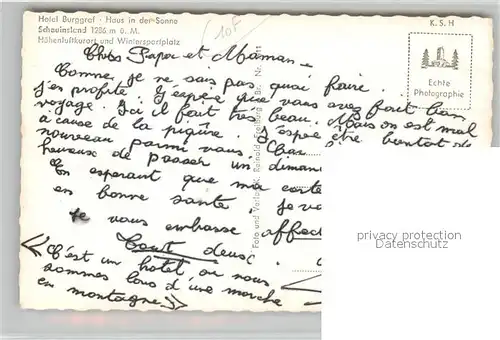 Hotel Burggraf · Haus in der Sonne
Schauinsland 1286 m ü. M.
Höhenluftkurort und Wintersportplatz
10F
K. S. H
Echte
Photographie
Chers Papa et Maman.
Comme je ne sais pas quoi faire.
j'en profite. J'espère que vous avez fait bon
voyage. Ici il fait très beau. Mais on est mal
à cause de la piqûre. J'espère être bientôt de
nouveau parmi vous. Car
heureux de passer un dimanc
En espérant que ma carte
en bonne santé. je vo
te vous embrasse affec
Tout deus.
<C'est un hotel ou nous
sommes lors d'une marche
en montagne>
Foto und Verlag K. Reinold, Freiburg i. Br. Nr.
privacy protection
watermark